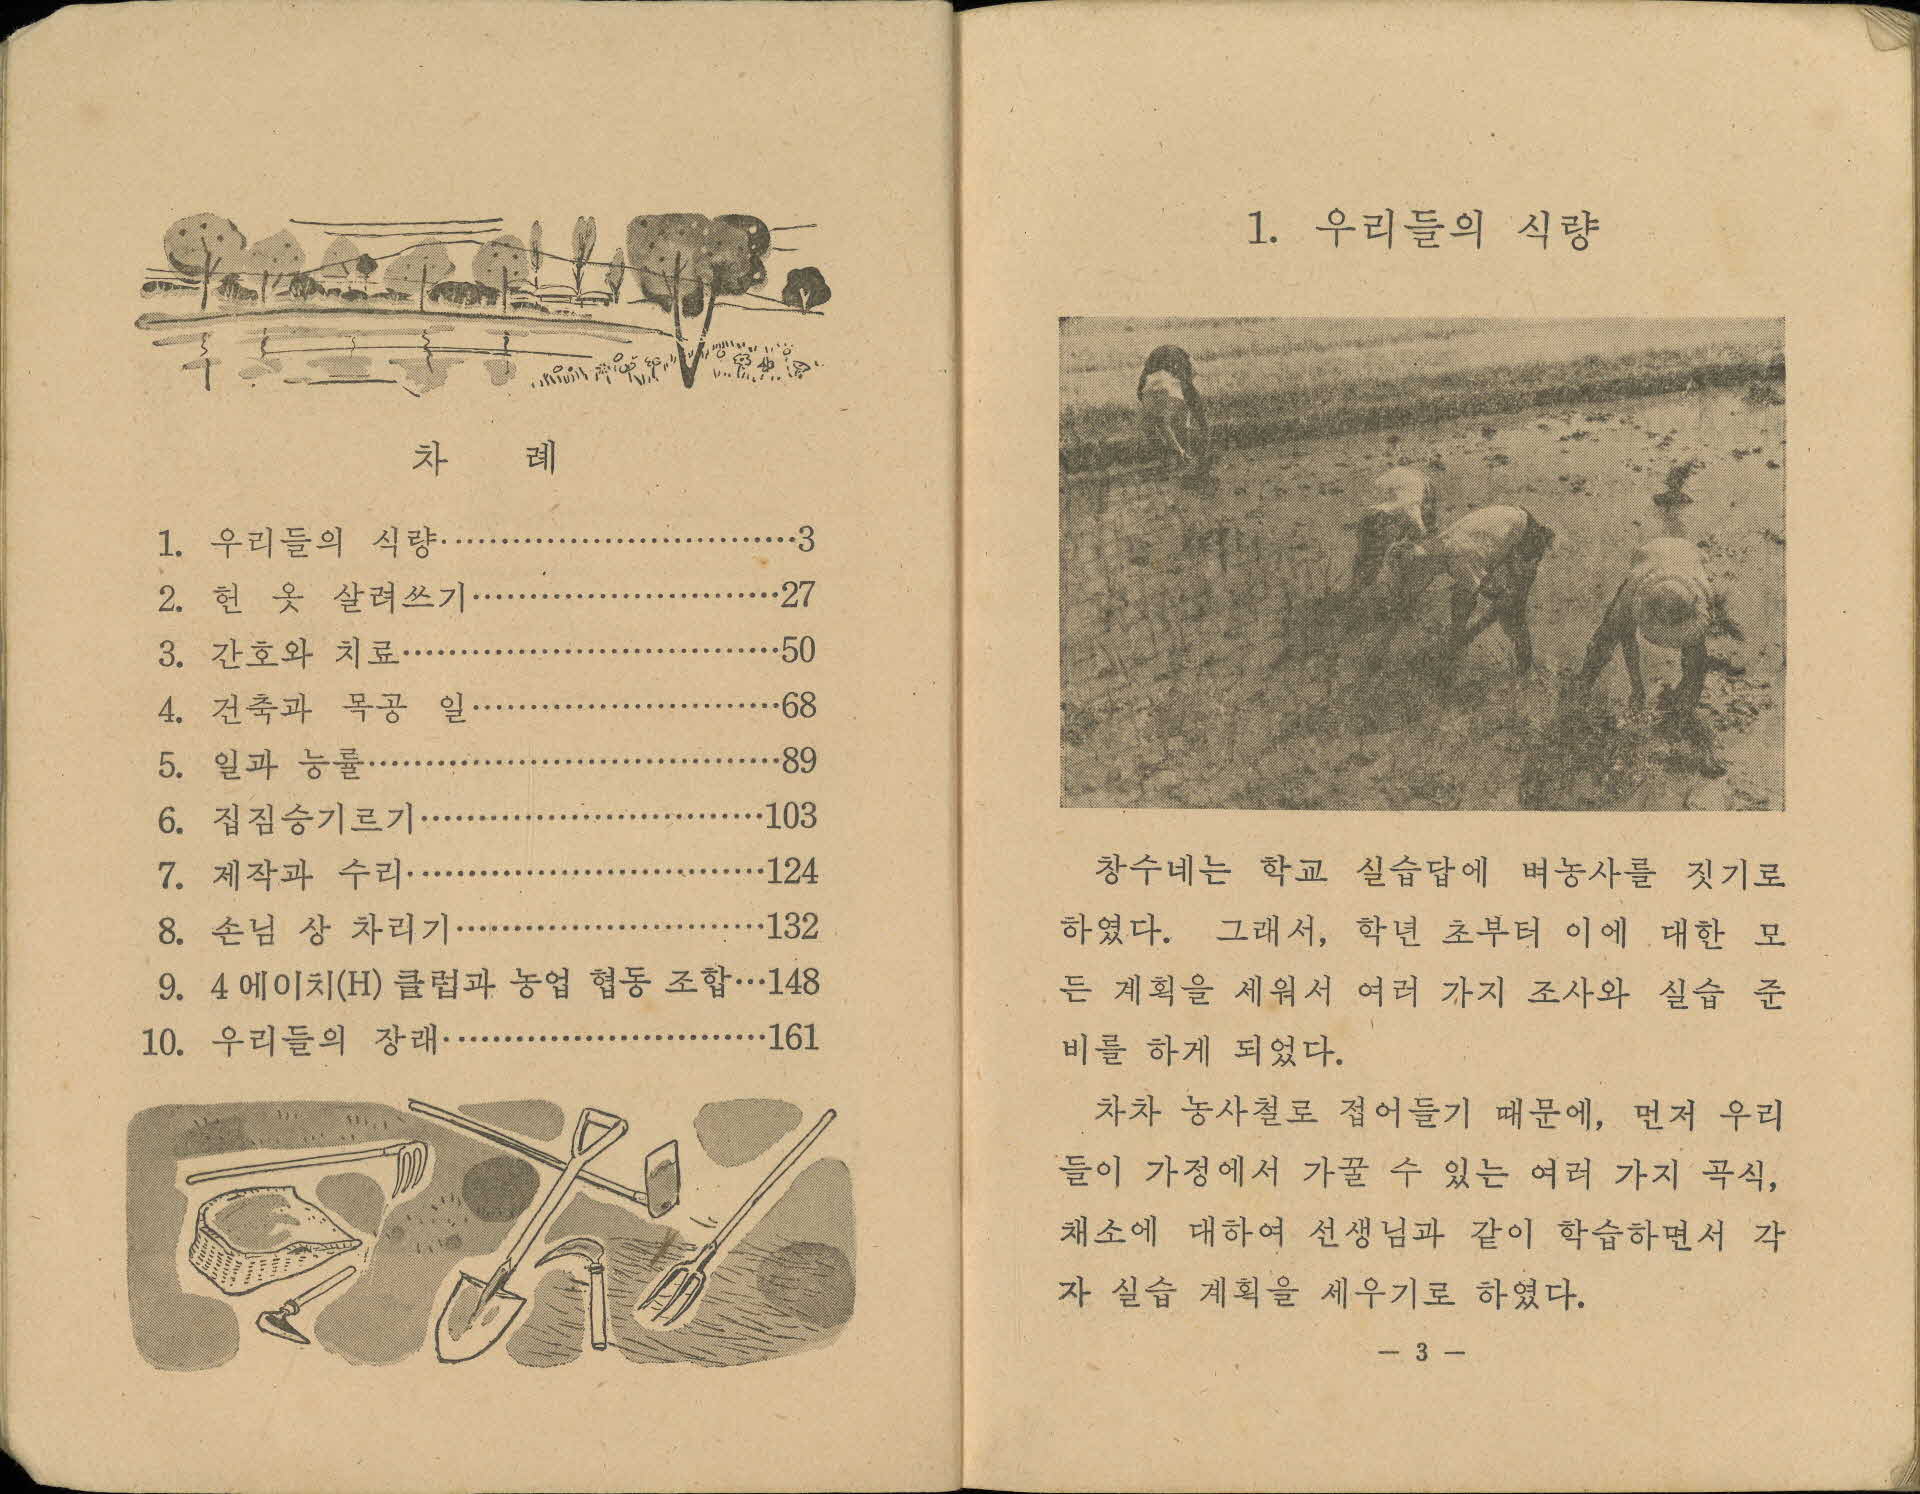 차 례
1. 우리들의 식량……………………………3
2. 헌 옷 살려쓰기………………………27
3. 간호와 치료……………………………50
4. 건축과 목공 일………………………68
5. 일과 능률………………………………89
6. 집짐승기르기…………………………103
7. 제작과 수리……………………………124
8. 손님 상 차리기………………………132
9. 4 에이치(H) 클럽과 농업 협동 조합…148
10. 우리들의 장래…………………………161
1. 우리들의 식량
창수네는 학교 실습답에 벼농사를 짓기로
하였다. 그래서, 학년 초부터 이에 대한 모
든 계획을 세워서 여러 가지 조사와 실습 준
비를 하게 되었다.
차차 농사철로 접어들기 때문에, 먼저 우리
들이 가정에서 가꿀 수 있는 여러 가지 곡식,
채소에 대하여 선생님과 같이 학습하면서 각
자 실습 계획을 세우기로 하였다.
— 3 —